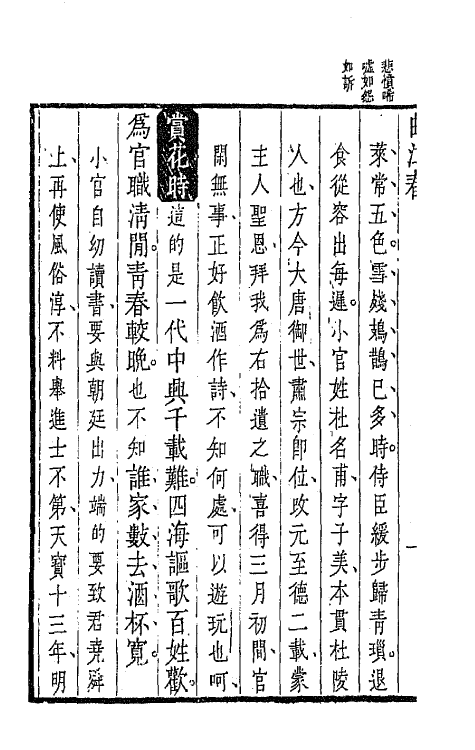 悲憤唏
噓如怨
如訴
曲江春 一
萊常五色。雪殘鳷鵲已多時。侍臣緩步歸青瑣。退
食從容出每遲。小官姓杜名甫、字子美、本貫杜陵
人也、方今大唐御世、肅宗卽位、改元至德二載、蒙
主人聖恩、拜我爲右拾遺之職、喜得三月初間、官
閑無事、正好飲酒作詩、不知何處、可以遊玩也呵、
賞花時 道的是一代中興千載難。四海謳歌百姓歡。
爲官職淸閒。靑春較晚。也不知誰家數去酒杯寬。
小官自幼讀書、要與朝廷出力、端的要致君堯舜
上、再使風俗淳、不料舉進士不第、天寶十三年、明